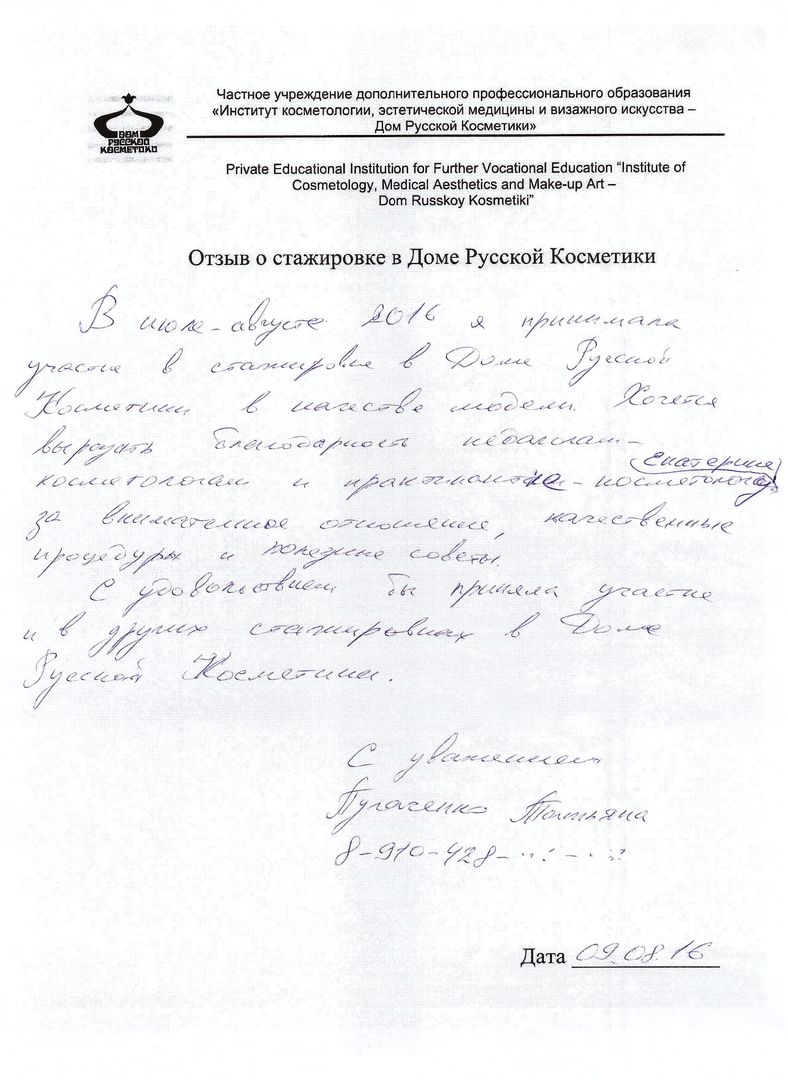 ДОМ
РУССКОЙ
КОСМЕТИКИ
Частное учреждение дополнительного профессионального образования
«Институт косметологии, эстетической медицины и визажного искусства –
Дом Русской Косметики»
Private Educational Institution for Further Vocational Education “Institute of
Cosmetology, Medical Aesthetics and Make-up Art –
Dom Russkoy Kosmetiki”
Отзыв о стажировке в Доме Русской Косметики
В июле-августе 2016 я принимала
участие в стажировке в Доме Русской
Косметики в качестве модели. Хочется
выразить благодарность педагогам-
Екатерине
косметологам и практикантке-косметологу
за внимательное отношение, качественные
процедуры и полезные советы.
С удовольствием бы приняла участие
и в других стажировках в Доме
Русской Косметики.
С уважением
Пугаченко Татьяна
8-910-428-
Дата 09.08.16